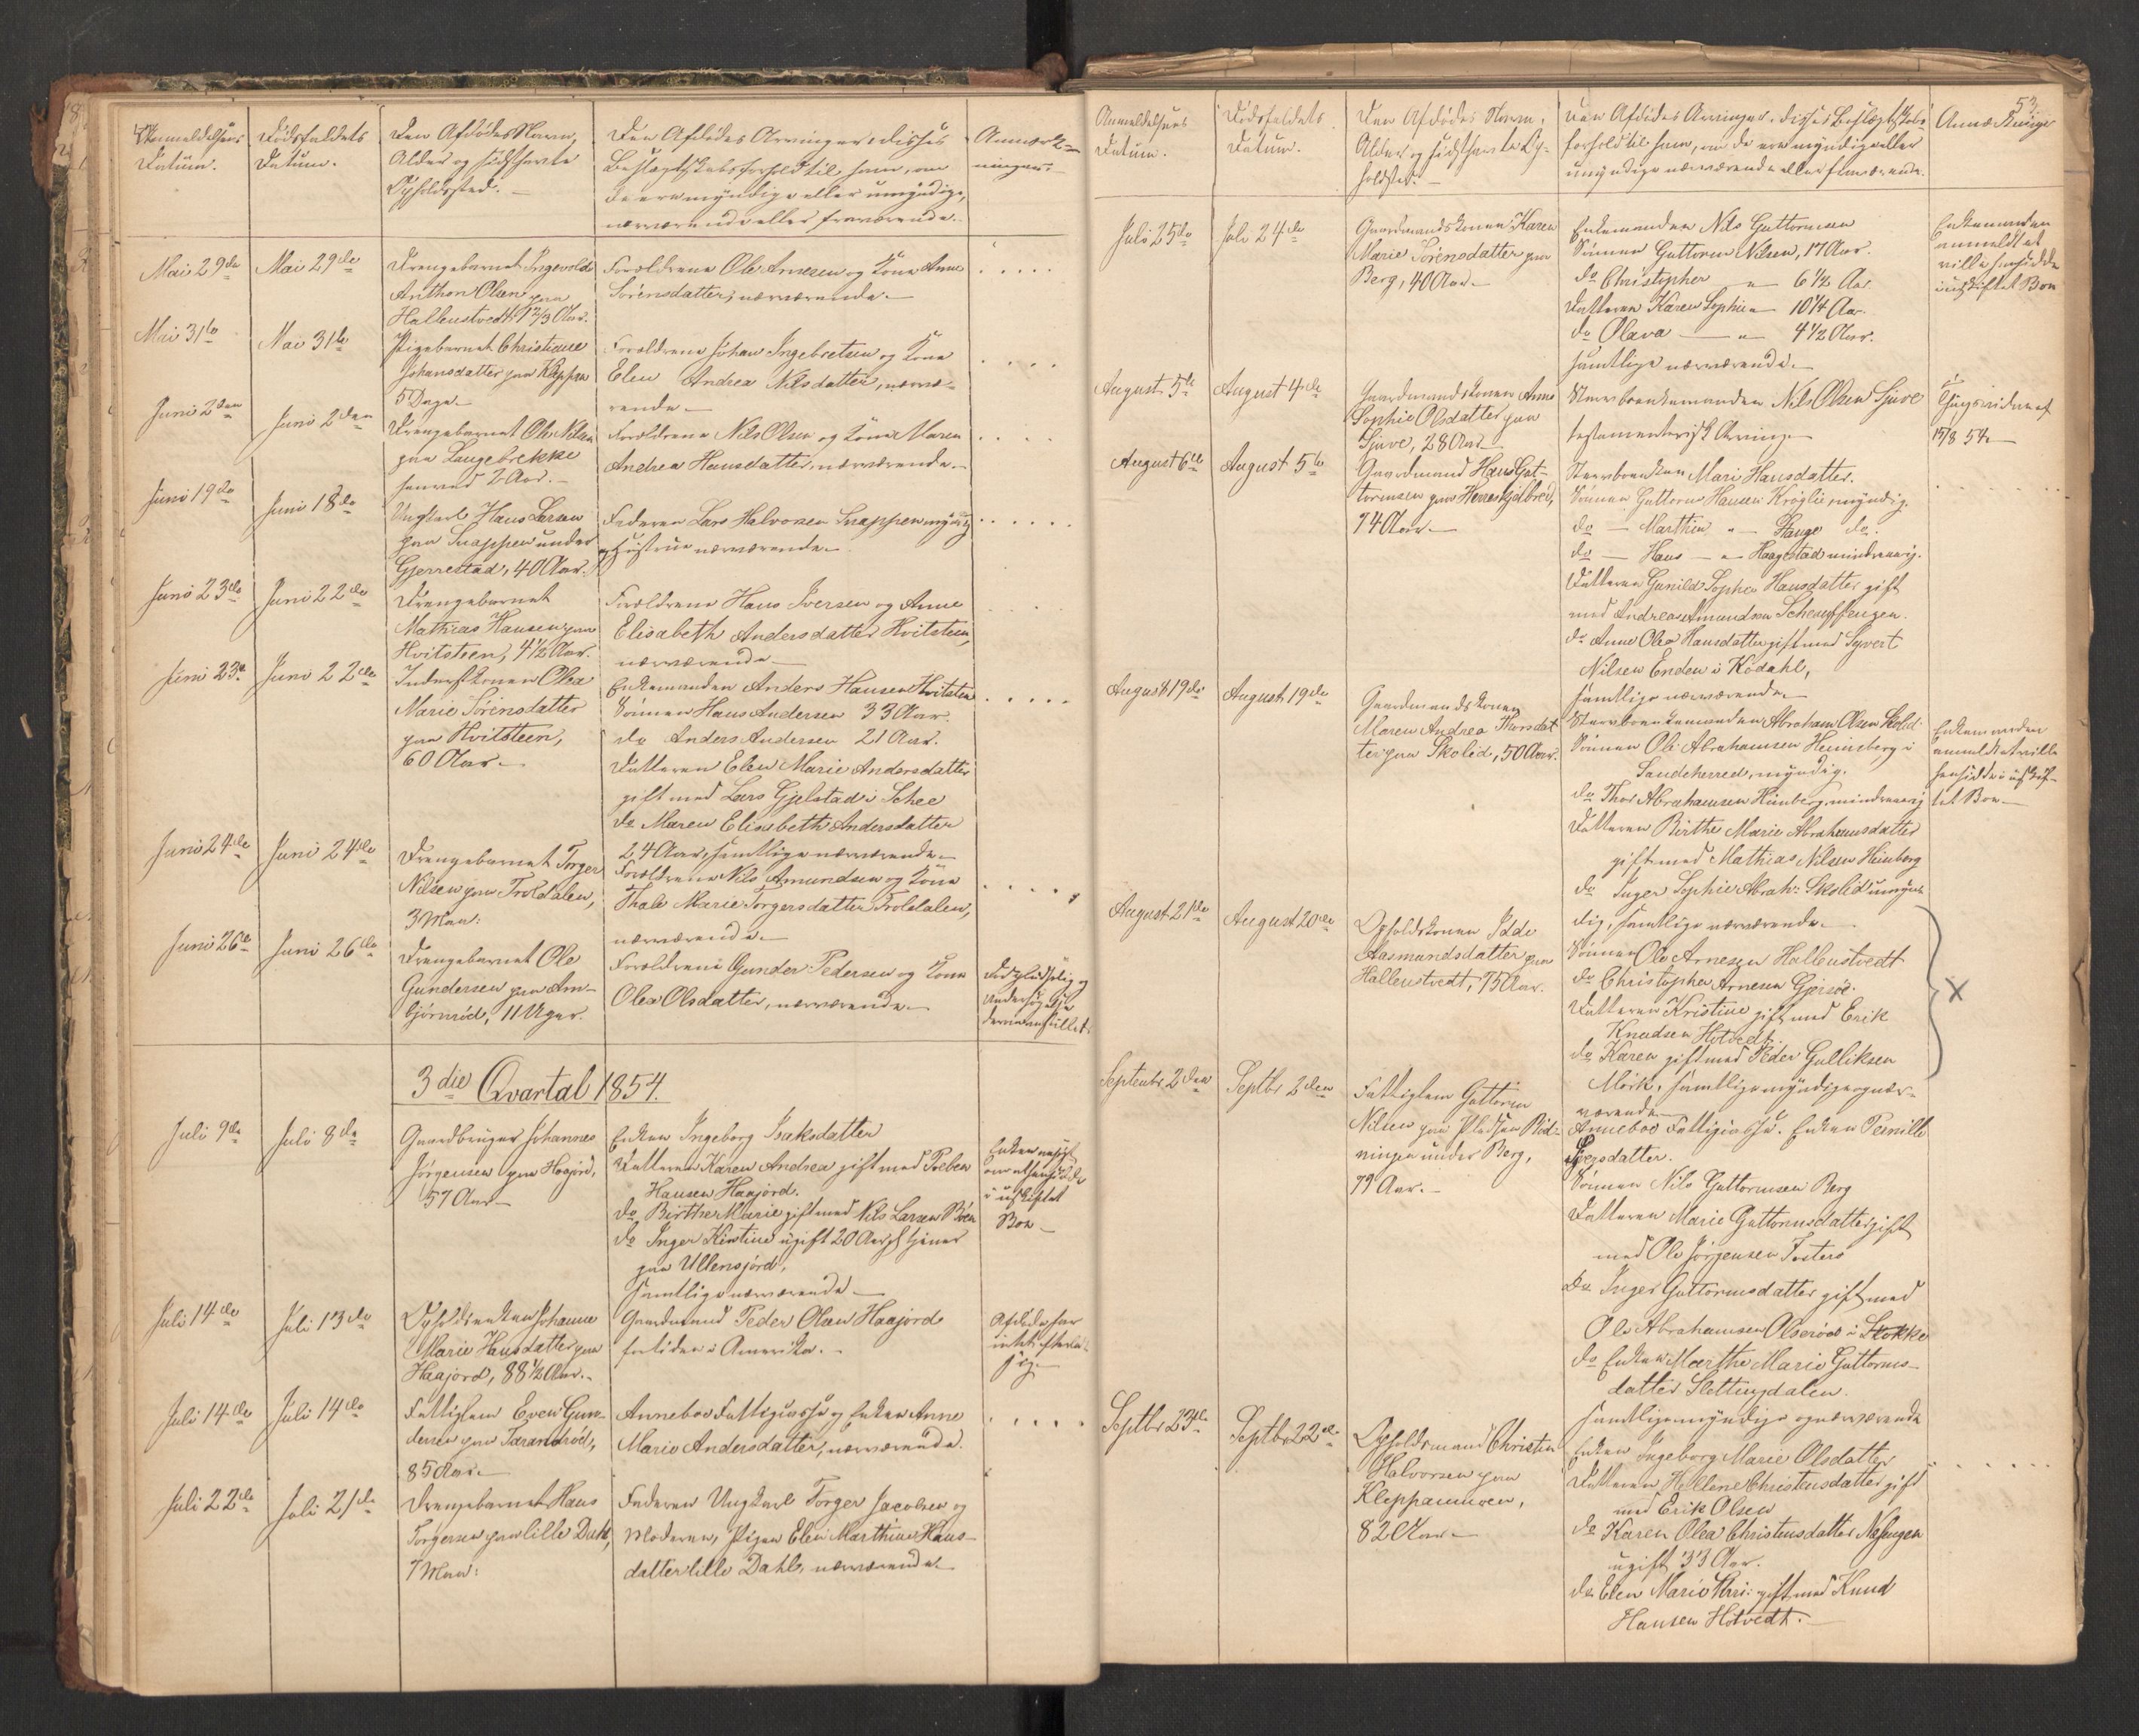 Anmeldelsens
Datum.
Dødsfaldets
Datum.
Den Afdødes Navn,
Alder og sidst havte
Opholdssted.
Den Afdødes Arvinger, disses
Beslægtskabsforhold til ham, om
de ere myndige eller umyndige,
nærværende eller fraværende.
Anmærk-
ninger.
Mai 29de
Mai 29de
Drengebarnet Ingevold
Anthon Olsen paa
Hallenstvedt 1 2/3 Aar.
Forældrene Ole Arnesen og Kone Anne
Sørensdatter, nærværende.
Mai 31te
Mai 31te
Pigebarnet Christiane
Johansdatter paa Kleppan
5 Dage.
Forældrene Johan Ingebretsen og Kone
Elen Andrea Nilsdatter, nærvæ-
rende.
Juni 2den
Juni 2den
Drengebarnet Ole Nilsen
paa Langebrekke
henved 2 Aar.
Forældrene Nils Olsen og Kone Maren
Andrea Hansdatter, nærværende.
Juni 19de
Juni 18de
Ungkarl Hans Larsen
paa Snappen under
Gjerrestad, 40 Aar.
Faderen Lars Halvorsen Snappen myndig
og Hustrue nærværende.
Juni 23de
Juni 22de
Drengebarnet
Mathias Hansen paa
Hvitsteen, 4 1/2 Aar.
Forældrene Hans Iversen og Anne
Elisabeth Andersdatter Hvitsteen,
nærværende.
Juni 23de
Juni 22de
Inderstkonen Olea
Marie Sörensdatter
paa Hvitsteen,
60 Aar.
Enkemanden Anders Hansen Hvitsteen
Sönnen Hans Andersen 33 Aar.
do Anders Andersen 21 Aar.
Datteren Elen Marie Andersdatter
gift med Lars Gjelstad i Schee
do Maren Elisabeth Andersdatter
24 Aar, samtlige nærværende.
Juni 24de
Juni 24de
Drengebarnet Torger
Nilsen paa Troldalen,
3 Mdr:
Forældrene Nils Amundsen og Kone
Thale Marie Torgersdatter Troldalen,
nærværende.
Juni 26de
Juni 26de
Drengebarnet Ole
Gundersen paa Am-
björnröd, 11 Uger.
Forældrene Gunder Pedersen og Kone
Olea Olsdatter, nærværende.
3die Qvartal 1854.
Juli 9de
Juli 8de
Gaardbruger Johannes
Jörgensen paa Haajord,
57 Aar
Enken Ingeborg Isaksdatter
Datteren Karen Andrea gift med Preben
Hansen Haajord.
do Birthe Marie gift med Nils Larsen Böen
do Inger Kirstine ugift 20 Aar, tjener
paa Ullensjord,
samtlige nærværende.
i uskiftet
Boe
Juli 14de
Juli 13de
Opholdsenken Johanne
Marie Hansdatter paa
Haajord, 88 1/2 Aar.
Gaardmand Peder Olsen Haajord
for tiden i Amerika.
Afdøde har
intet efterladt
sig.
Juli 14de
Juli 14de
Fattiglem Even Gun-
dersen paa Tarandröd,
85 Aar.
Anneboe Fattigkasse og Enken Anne
Marie Andersdatter, nærværende.
Juli 22de
Juli 21de
Drengebarnet Hans
Torgersen paa lille Dahl,
7 Mdr:
Faderen Ungkarl Torger Jacobsen og
Moderen, Pigen Elen Marthine Hans-
datter lille Dahl, nærværende.
53
Anmeldelsens
Datum.
Dødsfaldets
Datum.
Den Afdødes Navn,
Alder og sidst havte Op-
holdsted.
Den Afdødes Arvinger, disses Beslægtskabs-
forhold til ham, om de ere myndige eller
umyndige nærværende eller fraværende.
Anmærkninger
Juli 25de
Juli 24de
Gaardmandskonen Karen
Marie Sörensdatter paa
Berg, 40 Aar.
Enkemanden Nils Guttormsen
Sönnen Guttorm Nilsen, 17 Aar.
do Christopher " 6 1/2 Aar
Datteren Karen Sophie " 10 1/4 Aar.
do Olava " 4 1/2 Aar.
samtlige nærværende.
Enkemanden
anmeldt at
ville hensidde
i uskiftet Boe
August 5te
August 4de
Gaardmandskonen Anne
Sophie Olsdatter paa
Sjuve, 28 Aar.
Stervboenkemanden Nils Olsen Sjuve
testamentarisk Arving.
Thingsvidne af
15/8 54
August 6te
August 5te
Gaardmand Hans Gut-
tormsen paa Herreskjelbred,
74 Aar.
Stervboenken Mari Hansdatter.
Sönnen Guttorm Hansen Kröglie, myndig.
do — Marthin " — Hauge do.
do — Hans — " Haagestad mindreaarig.
Datteren Gunild Sophie Hansdatter gift
med Andreas Amundsen
do Anne Olea Hansdatter gift med Syvert
Nilsen Enden i Kodahl,
samtlige nærværende.
August 19de
August 19de
Gaardmandskonen
Maren Andrea Thorsdat-
ter paa Skolid, 50 Aar.
Stervboenkemanden Abraham Olsen Skolid
Sönnen Ole Abrahamsen Heimberg i
Sandeherred, myndig.
do Thor Abrahamsen Heimberg, mindreaarig
Datteren Birthe Marie Abrahamsdatter
gift med Mathias Nilsen Heimberg
do Inger Sophie Abrah: Skolid umyn-
dig, samtlige nærværende.
Enkemanden
anmeldt at ville
hensidde i uskif-
tet Boe.
August 21de
August 20de
Opholdskonen Idde
Aasmundsdatter paa
Hallenstvedt, 75 Aar.
Sönnen Ole Arnesen Hallenstvedt
do Christopher Arnesen Gjersöe.
Datteren Kristine gift med Erik
Knudsen Hotvedt,
do Karen gift med Peder Gulliksen
Mörk, samtlige myndige og nær-
værende.
X
Septembr 2den
Septbr 2den
Fattiglem Guttorm
Nilsen paa Pladsen Röd-
ningen under Berg,
79 Aar.
Anneboe Fattigkasse. Enken Pernille
datter.
Sönnen Nils Guttormsen Berg
Datteren Marie Guttormsdatter gift
med Ole Jörgensen
do Inger Guttormsdatter gift med
Ole Abrahamsen Olseröd i Stokke
do Enken Marthe Marie Guttorms-
datter Slettingdalen.
samtlige myndige og nærværende
Septbr 23de
Septbr 22de
Opholdsmand Christen
Halvorsen paa
Kleppanmoen,
82 Aar.
Enken Ingeborg Marie Olsdatter
Datteren Hellene Christensdatter gift
med Erik Olsen
do Karen Olea Christensdatter
ugift 33 Aar.
do Elen Marie Chri: gift med Knud
Hansen Hotvedt.